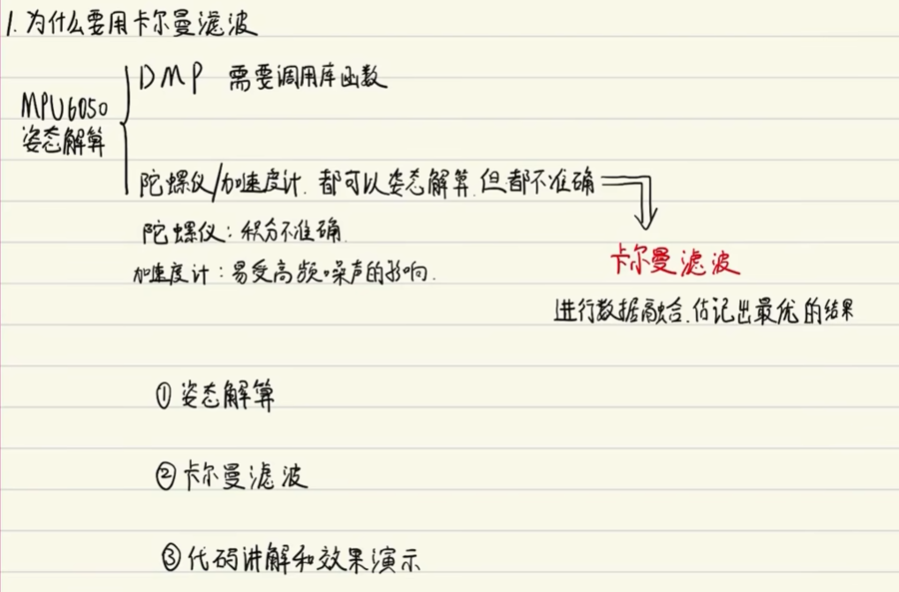 1. 为什么要用卡尔曼滤波
DMP 需要调用库函数
MPU6050
姿态解算
陀螺仪/加速度计. 都可以姿态解算. 但都不准确
陀螺仪: 积分不准确.
加速度计: 易受高频噪声的影响.
卡尔曼滤波
进行数据融合. 估记出最优的结果
① 姿态解算
② 卡尔曼滤波
③ 代码讲解和效果演示